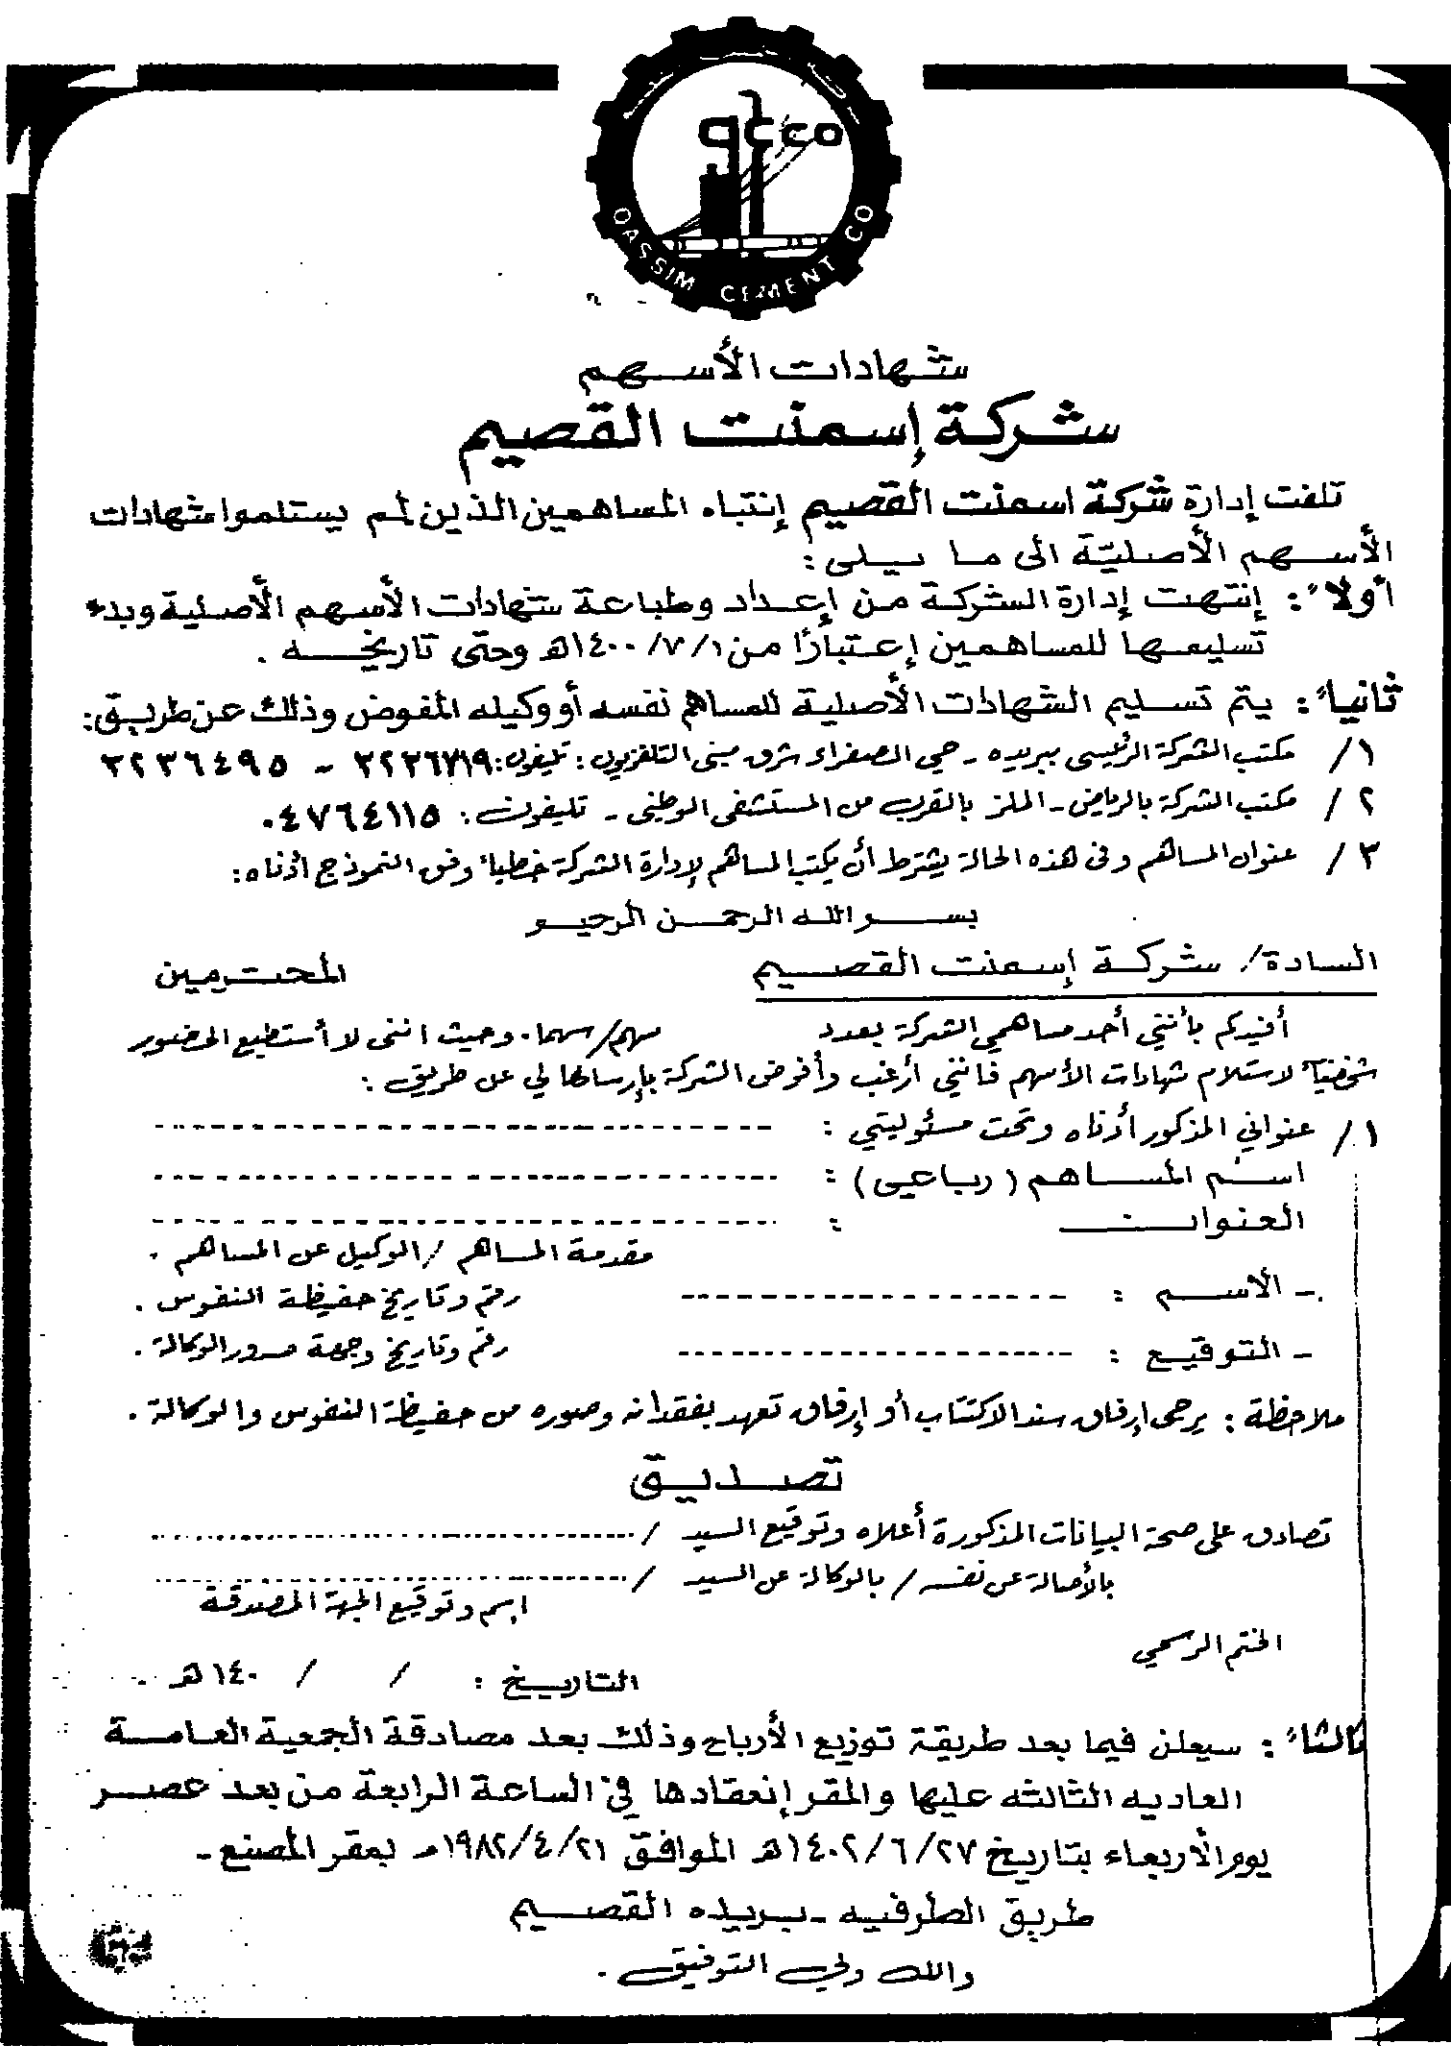 qcco
QASSIM CEMENT CO
شهادات الأسهم
شركة إسمنت القصيم
تلفت إدارة شركة اسمنت القصيم إنتباه المساهمين الذين لم يستلموا شهادات
الأسهم الأصلية الى ما يلى :
أولاً : إنتهت إدارة الشركة من إعداد وطباعة شهادات الأسهم الأصلية وبدء
تسليمها للمساهمين إعتبارًا من ١/٧/١٤٠٠هـ وحتى تاريخه .
ثانياً : يتم تسليم الشهادات الأصلية للمساهم نفسه أو وكيله المفوض وذلك عن طريق :
١/ مكتب الشركة الرئيسى ببريده - حي الصفراء شرق مبنى التلفزيون : تليفون : ٣٢٣٦٧١٩ - ٣٢٣٦٤٩٥
٢/ مكتب الشركة بالرياض - الملز بالقرب من المستشفى الوطنى - تليفون : ٤٧٦٤١١٥٠
٣/ عنوان المساهم وفى هذه الحالة يشترط أن يكتب المساهم لإدارة الشركة خطياً وفق النموذج أدناه :
بسم الله الرحمن الرحيم
السادة / شركة إسمنت القصيم المحترمين
أفيدكم بأنني أحد مساهمي الشركة بعدد سهم/سهما . وحيث اننى لا أستطيع الحضور
شخصياً لاستلام شهادات الأسهم فانني أرغب وأفوض الشركة بإرسالها لي عن طريق :
١/ عنواني المذكور أدناه وتحت مسئوليتي :
اسم المساهم ( رباعى ) :
العنوان :
مقدمة المساهم / الوكيل عن المساهم .
- الأسم : رقم وتاريخ حفيظة النفوس .
- التوقيع : رقم وتاريخ وجهة صدور الوكالة .
ملاحظة : يرجى إرفاق سند الاكتتاب أو إرفاق تعهد بفقدانه وصوره من حفيظة النفوس والوكالة .
تصديق
تصادق على صحة البيانات المذكورة أعلاه وتوقيع السيد /
بالأصالة عن نفسه / بالوكالة عن السيد /
اسم وتوقيع الجهة المصدقة
الختم الرسمي
التاريخ : / / ١٤٠هـ .
ثالثاً : سيعلن فيما بعد طريقة توزيع الأرباح وذلك بعد مصادقة الجمعية العامة
العاديه الثالثه عليها والمقر إنعقادها في الساعة الرابعة من بعد عصر
يوم الأربعاء بتاريخ ١٤٠٢/٦/٢٧هـ الموافق ١٩٨٢/٤/٢١م بمقر المصنع -
طريق الطرفيه - بريده القصيم
والله ولي التوفيق .